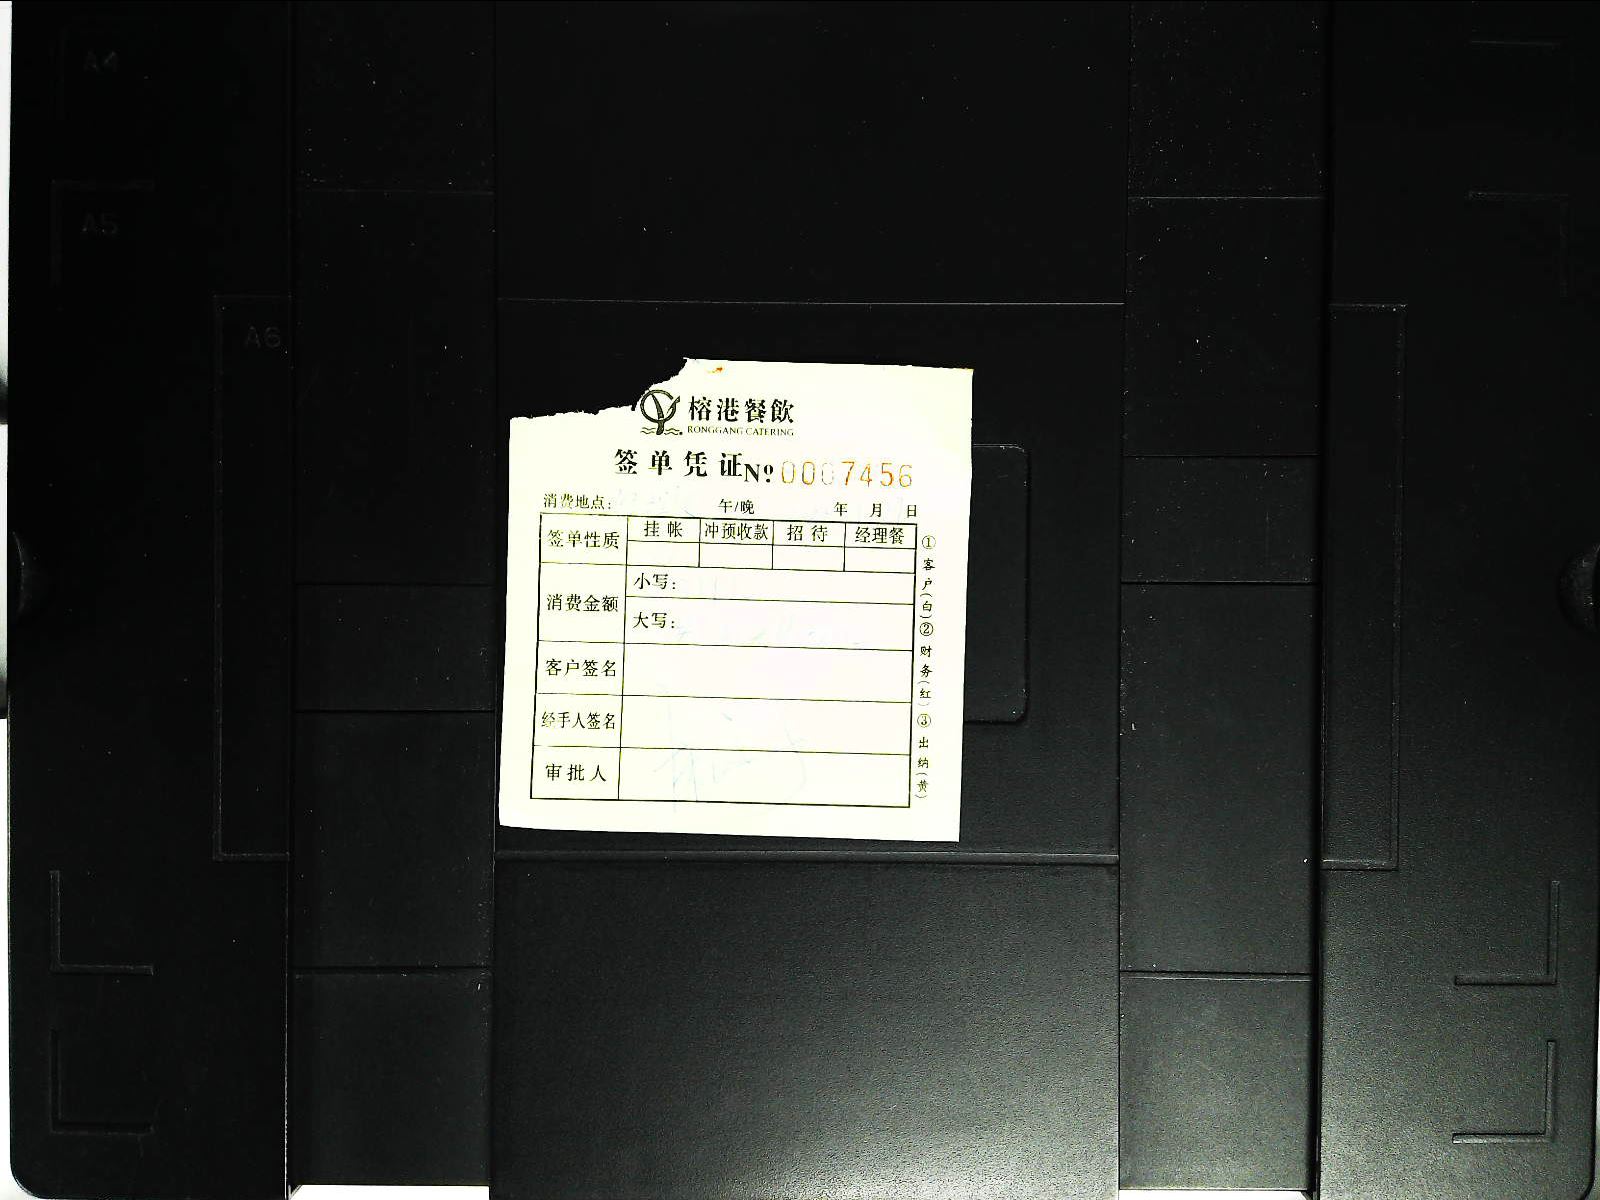 A4
A5
A6
榕港餐飲
RONGGANG CATERING
签单凭证 Nº 0007456
消费地点: 午/晚 年 月 日
签单性质 挂帐 冲预收款 招待 经理餐
消费金额 小写:
大写:
客户签名
经手人签名
审批人
①客户(白)②财务(红)③出纳(黄)